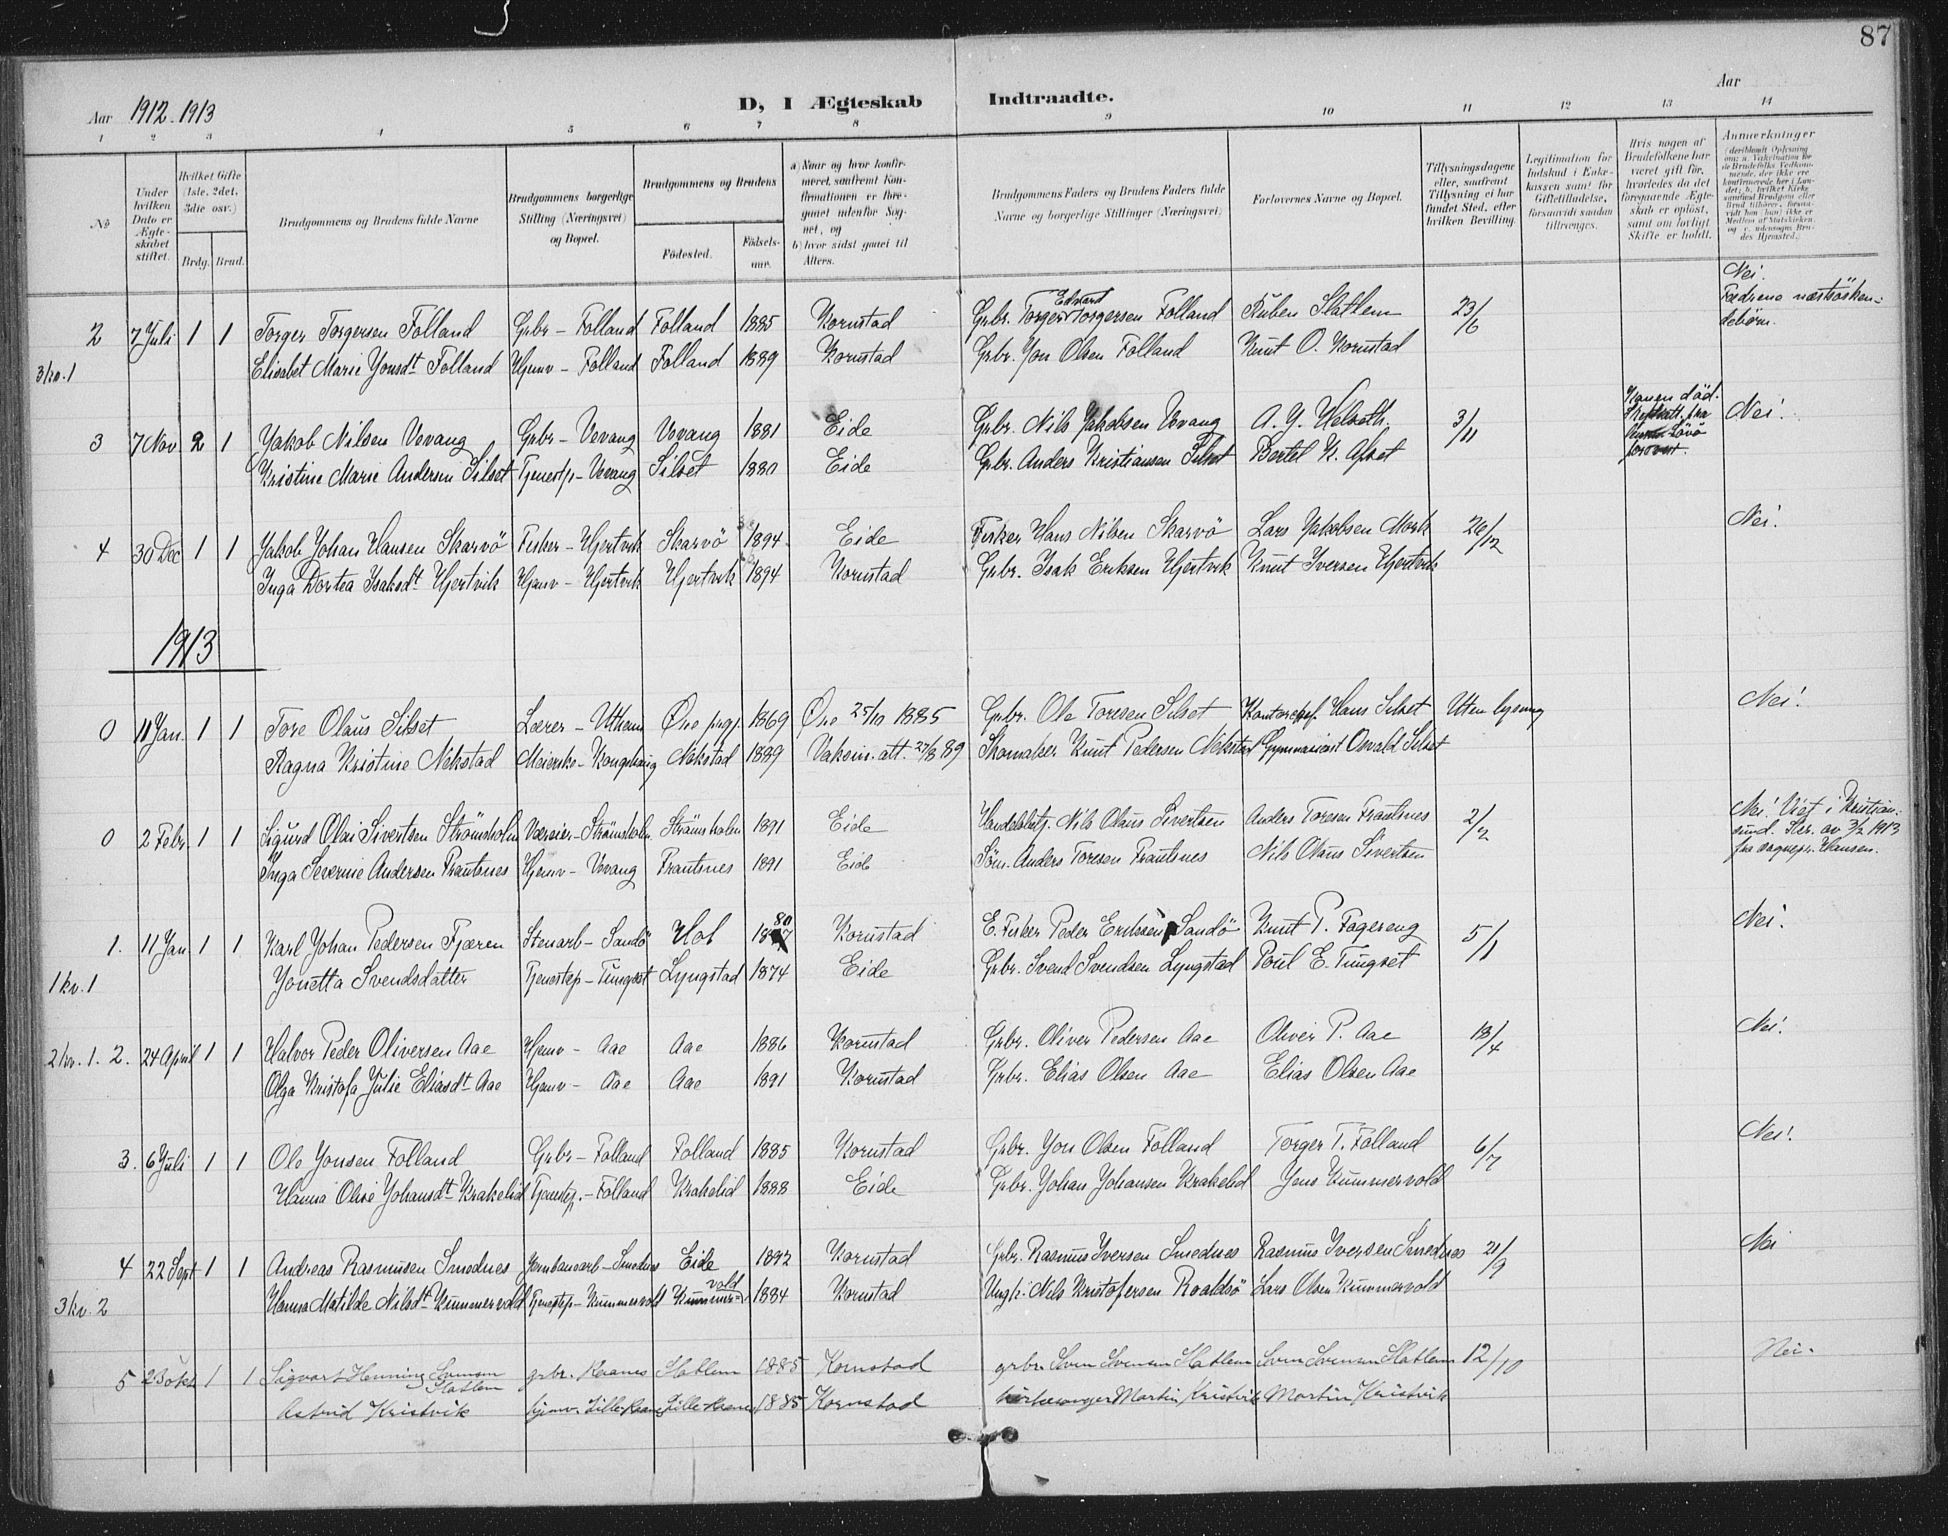 87
Aar 1912-1913
D, I Ægteskab Indtraadte.
Aar
1 2 3 4 5 6 7 8 9 10 11 12 13 14
No
Under hvilken Dato er Ægteskabet stiftet.
Hvilket Gifte (1ste, 2det, 3die osv.)
Brdg. Brud.
Brudgommens og Brudens fulde Navne
Brudgommens borgerlige Stilling (Næringsvei) og Bopæl.
Brudgommens og Brudens
Födested. Födselsaar.
a) Naar og hvor konfirmeret, saafremt Konfirmationen er foregaaet udenfor Sognet, og
b) hvor sidst gaaet til Alters.
Brudgommens Faders og Brudens Faders fulde Navne og borgerlige Stillinger (Næringsvei)
Forlovernes Navne og Bopæl.
Tillysningsdagene eller, saafremt Tillysning ei har fundet Sted, efter hvilken Bevilling.
Legitimation for Indskud i Enkekassen samt for Giftetilladelse, forsaavidt saadan tiltrænges.
Hvis nogen af Brudefolkene har været gift før, hvorledes da det foregaaende Ægteskab er opløst, samt om lovligt Skifte er holdt.
Anmerkninger
2 7 Juli 1 1 Torger Torgersen Folland Grbr - Folland Folland 1885 Kornstad Grbr. Torger Edvard Torgersen Folland Ruben Slatlem 23/6 Nei. Fædrene næstsösken-
debörn.
3 kv. 1 Elisabet Marie Jonsdt Folland Hjemv - Folland Folland 1889 Kornstad Grbr. Jon Olsen Folland Knut O. Kornstad
3 7 Nov 2 1 Jakob Nilsen Vevang Grbr - Vevang Vevang 1881 Eide Grbr. Nils Jakobsen Vevang A. J. Helseth. 3/11 Konen död. Nei.
Kristine Marie Andersen Silset Tjenestp - Vevang Silset 1880 Eide Grbr. Anders Kristiansen Silset Bertel K. Apset
4 30 Dec 1 1 Jakob Johan Hansen Skarvö Fisker - Hjertvik Skarvö 1894 Eide Fisker Hans Nilsen Skarvö Lars Jakobsen Mork 26/12 Nei.
Inga Dortea Isaksdt Hjertvik Hjemv - Hjertvik Hjertvik 1894 Kornstad Grbr. Isak Eriksen Hjertvik Knut Iversen Hjertvik
1913
0 11 Jan. 1 1 Tore Olaus Silset Lærer - Utheim Öre prgj. 1869 Öre 25/10 1885 Grbr. Ole Toresen Silset Kontorchef. Hans Silset Uten lysning Nei!
Ragna Kristine Nekstad Meierske - Kongshaug Nekstad 1889 Vaksin. att. 27/8 89 Skomaker Knut Pedersen Nekstad Gymnasiast Osvald Silset
0 2 Febr 1 1 Sigurd Olai Sivertsen Strömsholm Væreier - Strömsholm. Strömsholm 1891 Eide Handelsbetj. Nils Olaus Sivertsen Anders Toresen Frautnes 2/2 Nei! Viet i Kristian-
sund.
Inga Severine Andersen Frautnes Hjemv - Vevang Frautnes 1891 Eide Anders Toresen Frautnes Nils Olaus Sivertsen
1. 11 Jan 1 1 Karl Johan Pedersen Fjæren Stenarb - Sandö Hol 1880 Kornstad E. Fisker Peder Eriksen Sandö Knut P. Fagereng 5/1 Nei!
1 kv. 1 Jonetta Svendsdatter Tjenestep - Tungset Lyngstad 1874 Eide Grbr. Svend Svendsen Lyngstad Poul E. Tungset
2 kv. 1. 2. 24 April 1 1 Halvor Peder Oliversen Aae Hjemv - Aae Aae 1886 Kornstad Grbr. Oliver Pedersen Aae Oliver P. Aae 13/4 Nei!
Olga Kristofa Julie Eliasdt Aae Hjemv - Aae Aae 1891 Kornstad Grbr. Elias Olsen Aae Elias Olsen Aae
3. 6 Juli 1 1 Ole Jonsen Folland Grbr - Folland Folland 1885 Kornstad Grbr. Jon Olsen Folland Torger T. Folland 6/7 Nei!
Hanna Olise Johansdt Krakelid Tjenestep. - Folland Krakelid 1888 Eide Grbr. Johan Johansen Krakelid Jens Kummervold
4 22 Sept 1 1 Andreas Rasmusen Smednes Jernbanearb - Smednes Eide 1892 Kornstad Grbr. Rasmus Iversen Smednes Rasmus Iversen Smednes 21/9 Nei
3 kv. 2 Hanna Matilde Nilsdt Kummervold Tjenestep - Kummervold Kummer-vold 1884 Kornstad Ungk. Nils Kristofersen Roaldsö Lars Olsen Kummervold
5 23 okt 1 1 Sigvart Henning Svensen Slatlem grbr. Ranes Slatlem 1885 Kornstad grbr. Sven Svensen Slatlem Sven Svensen Slatlem 12/10 Nei.
Astrid Kristvik hjemv. Lille Ranes Lille Ranes 1885 Kornstad kirkesanger Martin Kristvik Martin Kristvik